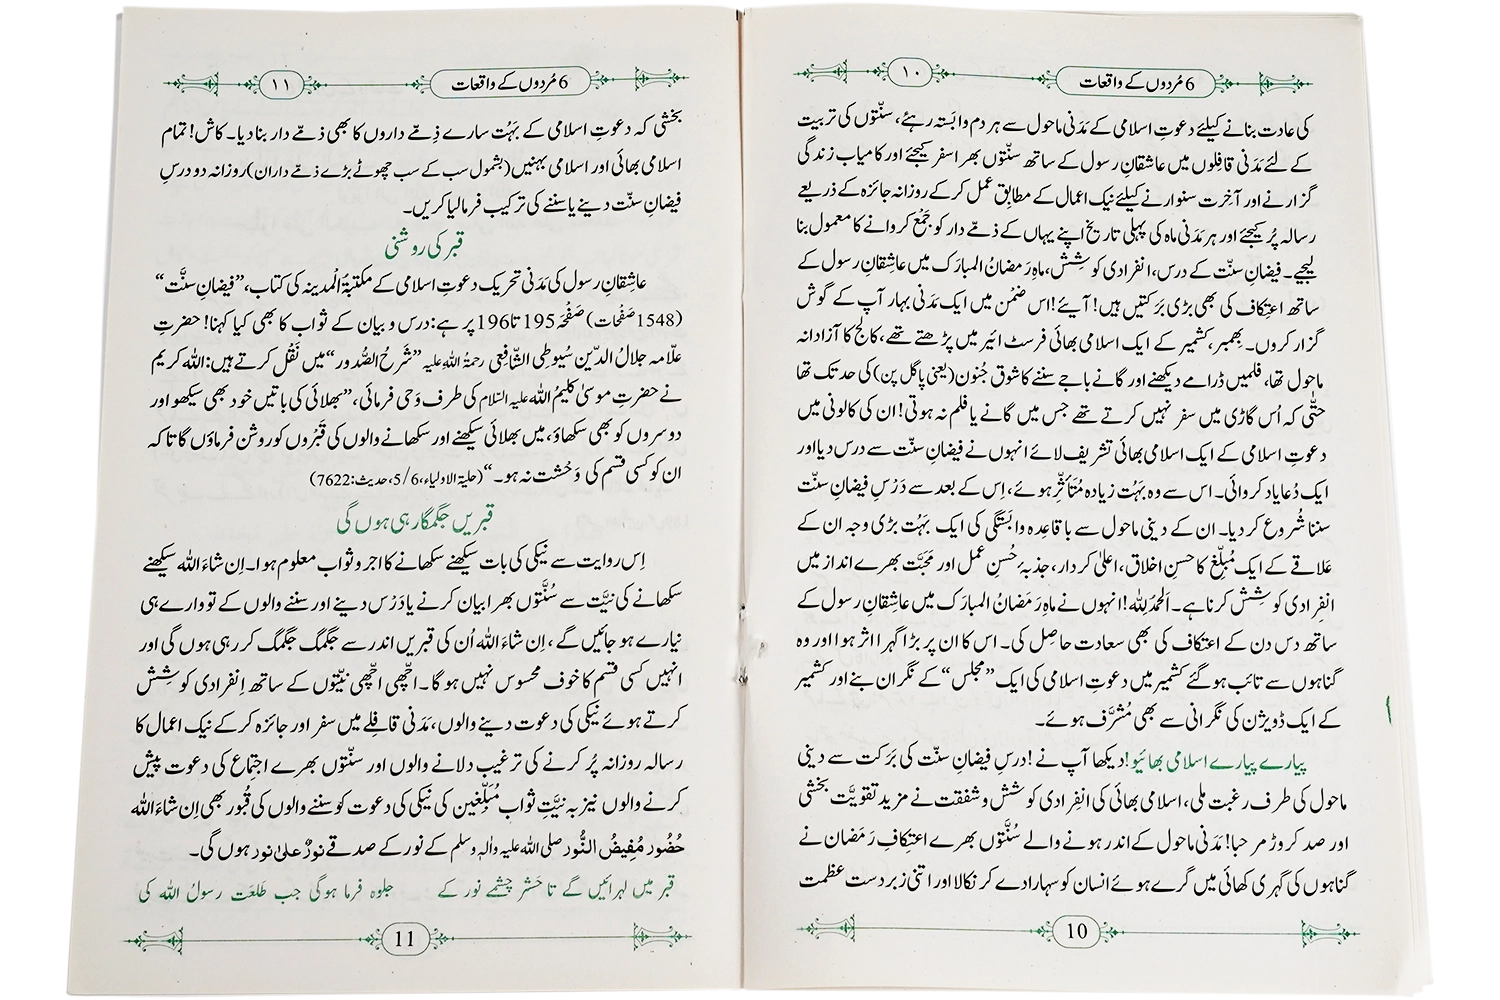 6 مُردوں کے واقعات
۱۰
کی عادت بنانے کیلئے دعوتِ اسلامی کے مَدَنی ماحول سے ہر دم وابَستہ رہئے، سنّتوں کی تربیت
کے لئے مَدَنی قافِلوں میں عاشقانِ رسول کے ساتھ سنّتوں بھرا سفر کیجئے اور کامیاب زندگی
گزارنے اور آخِرت سنوارنے کیلئے نیک اعمال کے مطابق عمل کر کے روزانہ جائزہ کے ذریعے
رسالہ پُر کیجئے اور ہر مَدَنی ماہ کی پہلی تاریخ اپنے یہاں کے ذمّے دار کو جَمْع کروانے کا معمول بنا
لیجیے۔ فیضانِ سنّت کے درس، انفرادی کوشِش، ماہِ رَمَضانُ المبارَک میں عاشقانِ رسول کے
ساتھ اعتِکاف کی بھی بڑی بَرَکتیں ہیں! آیئے! اس ضمْن میں ایک مَدَنی بہار آپ کے گوش
گزار کروں۔ بِھمبر، کشمیر کے ایک اسلامی بھائی فرسٹ ائیر میں پڑھتے تھے، کالج کا آزادانہ
ماحول تھا، فلمیں ڈرامے دیکھنے اور گانے باجے سننے کا شوق جُنون (یعنی پاگل پن) کی حد تک تھا
حتّٰی کہ اُس گاڑی میں سفر نہیں کرتے تھے جس میں گانے یا فلم نہ ہوتی! ان کی کالونی میں
دعوتِ اسلامی کے ایک اسلامی بھائی تشریف لائے انہوں نے فیضانِ سنّت سے درس دیا اور
ایک دُعا یاد کروائی۔ اس سے وہ بَہُت زیادہ مُتَأَثِّر ہوئے، اِس کے بعد سے دَرْسِ فیضانِ سنّت
سننا شُروع کر دیا۔ ان کے دینی ماحول سے باقاعدہ وابَستگی کی ایک بَہُت بڑی وجہ ان کے
علاقے کے ایک مُبلِّغ کا حسنِ اخلاق، اعلیٰ کردار، جذبۂ حُسنِ عمل اور مَحَبَّت بھرے انداز میں
انفِرادی کوشِش کرنا ہے۔ اَلحَمْدُلِلّٰہ! انہوں نے ماہِ رَمَضانُ المبارَک میں عاشقانِ رسول کے
ساتھ دس دن کے اعتکاف کی بھی سعادت حاصِل کی۔ اس کا ان پر بڑا گہرا اثر ہوا اور وہ
گناہوں سے تائب ہو گئے کشمیر میں دعوتِ اسلامی کی ایک ”مجلس“ کے نگران بنے اور کشمیر
کے ایک ڈویژن کی نگرانی سے بھی مُشرَّف ہوئے۔
پیارے پیارے اسلامی بھائیو! دیکھا آپ نے! درسِ فیضانِ سنّت کی بَرَکت سے دینی
ماحول کی طرف رغبت ملی، اسلامی بھائی کی انفِرادی کوشش و شفقت نے مزید تقویَّت بخشی
اور صد کروڑ مرحبا! مَدَنی ماحول کے اندر ہونے والے سُنَّتوں بھرے اعتِکافِ رَمَضان نے
گناہوں کی گہری کھائی میں گرے ہوئے انسان کو سہارا دے کر نکالا اور اتنی زبردست عظمت
10
6 مُردوں کے واقعات
۱۱
بخشی کہ دعوتِ اسلامی کے بَہُت سارے ذِمّے داروں کا بھی ذمّے دار بنا دیا۔ کاش! تمام
اسلامی بھائی اور اسلامی بہنیں (بشمول سب کے سب چھوٹے بڑے ذمّے داران) روزانہ دو درسِ
فیضانِ سنّت دینے یا سننے کی ترکیب فرما لیا کریں۔
قبر کی روشنی
عاشقانِ رسول کی مَدَنی تحریک دعوتِ اسلامی کے مکتبۃُ الْمدینہ کی کتاب، ”فیضانِ سنَّت“
(1548 صَفْحات) صَفْحَہ 195 تا 196 پر ہے: درس و بیان کے ثواب کا بھی کیا کہنا! حضرتِ
علّامہ جلالُ الدّین سُیوطِی الشّافِعی رحمۃُ اللہ علیہ ”شَرحُ الصُّدور“ میں نَقْل کرتے ہیں: اللہ کریم
نے حضرتِ موسیٰ کلیمُ اللہ علیہِ السّلام کی طرف وَحی فرمائی، ”بھلائی کی باتیں خود بھی سیکھو اور
دوسروں کو بھی سکھاؤ، میں بھلائی سیکھنے اور سکھانے والوں کی قَبْروں کو روشن فرماؤں گا تا کہ
ان کو کسی قسم کی وَحْشت نہ ہو۔“ (حلیۃ الاولیاء، 6/5، حدیث: 7622)
قبریں جگمگا رہی ہوں گی
اِس روایت سے نیکی کی بات سیکھنے سکھانے کا اجر و ثواب معلوم ہوا۔ اِن شاءَ اللہ سیکھنے
سکھانے کی نیَّت سے سُنَّتوں بھرا بیان کرنے یا دَرْس دینے اور سننے والوں کے تو وارے ہی
نیارے ہو جائیں گے، اِن شاءَ اللہ اُن کی قبریں اندر سے جگمگ جگمگ کر رہی ہوں گی اور
انہیں کسی قسم کا خوف محسوس نہیں ہو گا۔ اچّھی اچّھی نیّتوں کے ساتھ اِنفِرادی کوشِش
کرتے ہوئے نیکی کی دعوت دینے والوں، مَدَنی قافِلے میں سفر اور جائزہ کر کے نیک اعمال کا
رسالہ روزانہ پُر کرنے کی ترغیب دلانے والوں اور سنّتوں بھرے اجتِماع کی دعوت پیش
کرنے والوں نیز بہ نیّتِ ثواب مُبَلِّغین کی نیکی کی دعوت کو سننے والوں کی قُبُور بھی اِن شاءَ اللہ
حُضُور مُفِیضُ النُّور صلی اللہ علیہ والہٖ وسلم کے نور کے صدقے نورٌ علیٰ نور ہوں گی۔
قبر میں لہرائیں گے تا حَشر چشمے نور کے    جلوہ فرما ہوگی جب طَلعَت رسولُ اللہ کی
11